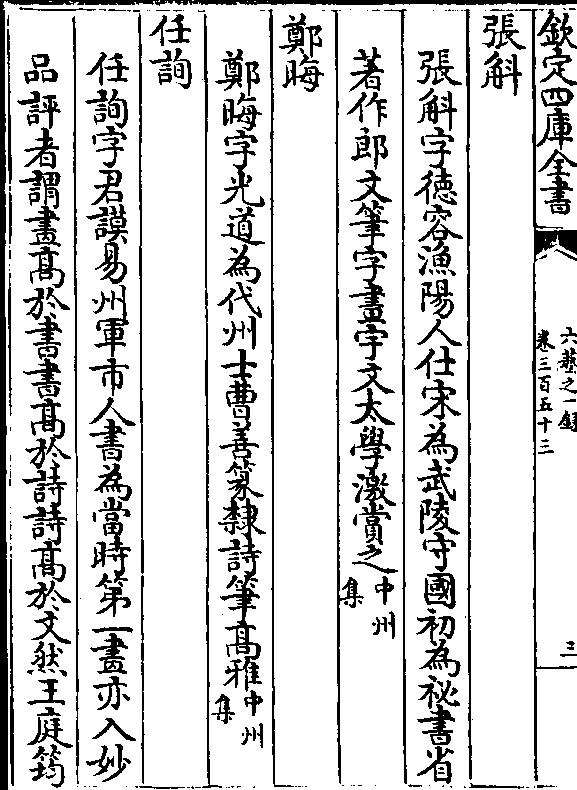 欽定四庫全書
六藝之一録
卷三百五十三
三
張斛
張斛字德容漁陽人仕宋為武陵守國初為祕書省
著作郎文筆字畫宇文太學激賞之中州
集
鄭晦
鄭晦字光道為代州士曹善篆隸詩筆髙雅中州
集
任詢
任詢字君謨易州軍市人書為當時第一畫亦入妙
品評者謂畫髙於書書髙於詩詩髙於文然王庭筠